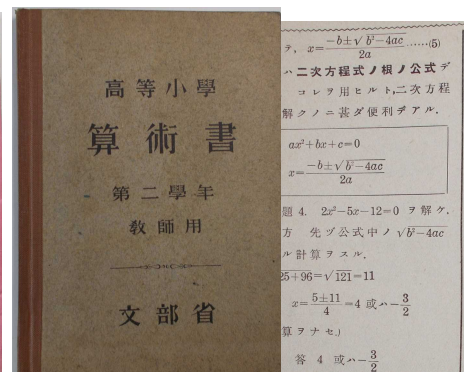 高等小學
算術書
第二學年
教師用
文部省
テ, x=\frac{-b±√b²-4ac}{2a}……(5)
ハ二次方程式ノ根ノ公式デ
コレヲ用ヒルト,二次方程
解クノニ甚ダ便利デアル.
ax²+bx+c=0
x=\frac{-b±√b²-4ac}{2a}
題 4. 2x²-5x-12=0 ヲ解ケ.
方 先ヅ公式中ノ √b²-4ac
ル計算ヲスル.
25+96=√121=11
x=\frac{5±11}{4}=4 或ハ-\frac{3}{2}
算ヲナセ.)
答 4 或ハ-\frac{3}{2}